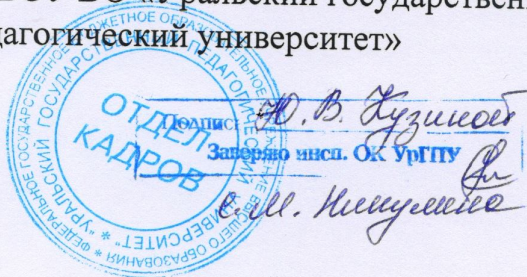 «Уральский государственн
дагогический университет»
ФЕДЕРАЛЬНОЕ ГОСУДАРСТВЕННОЕ БЮДЖЕТНОЕ ОБРАЗОВАТЕЛЬНОЕ УЧРЕЖДЕНИЕ ВЫСШЕГО ОБРАЗОВАНИЯ
"УРАЛЬСКИЙ ГОСУДАРСТВЕННЫЙ ПЕДАГОГИЧЕСКИЙ УНИВЕРСИТЕТ"
ОТДЕЛ
КАДРОВ
Подпись Ю. В. Кузиной
Заверяю инсп. ОК УрГПУ